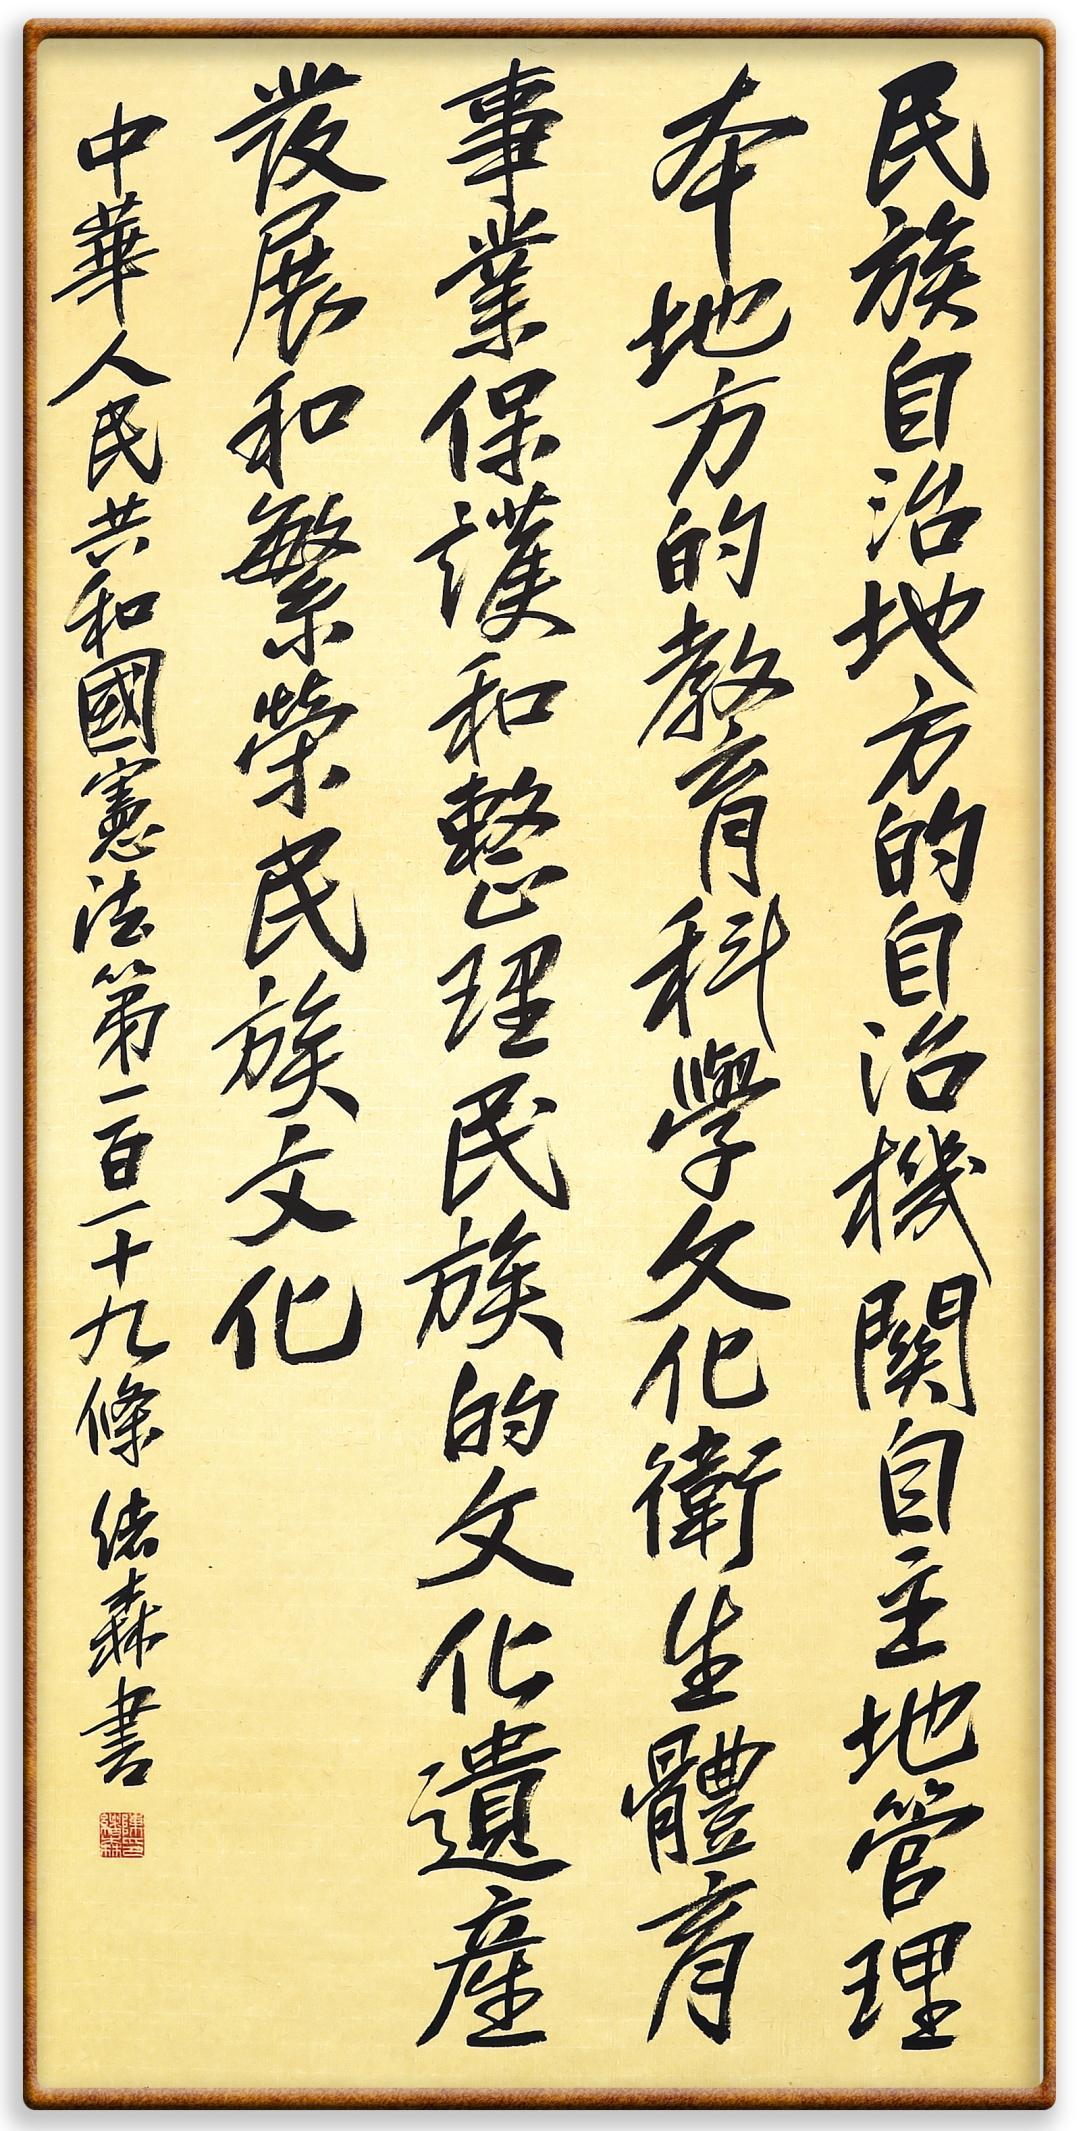 民族自治地方的自治機關自主地管理
本地方的教育科學文化衛生體育
事業保護和整理民族的文化遺產
發展和繁榮民族文化
中華人民共和國憲法第一百一十九條 緒森書